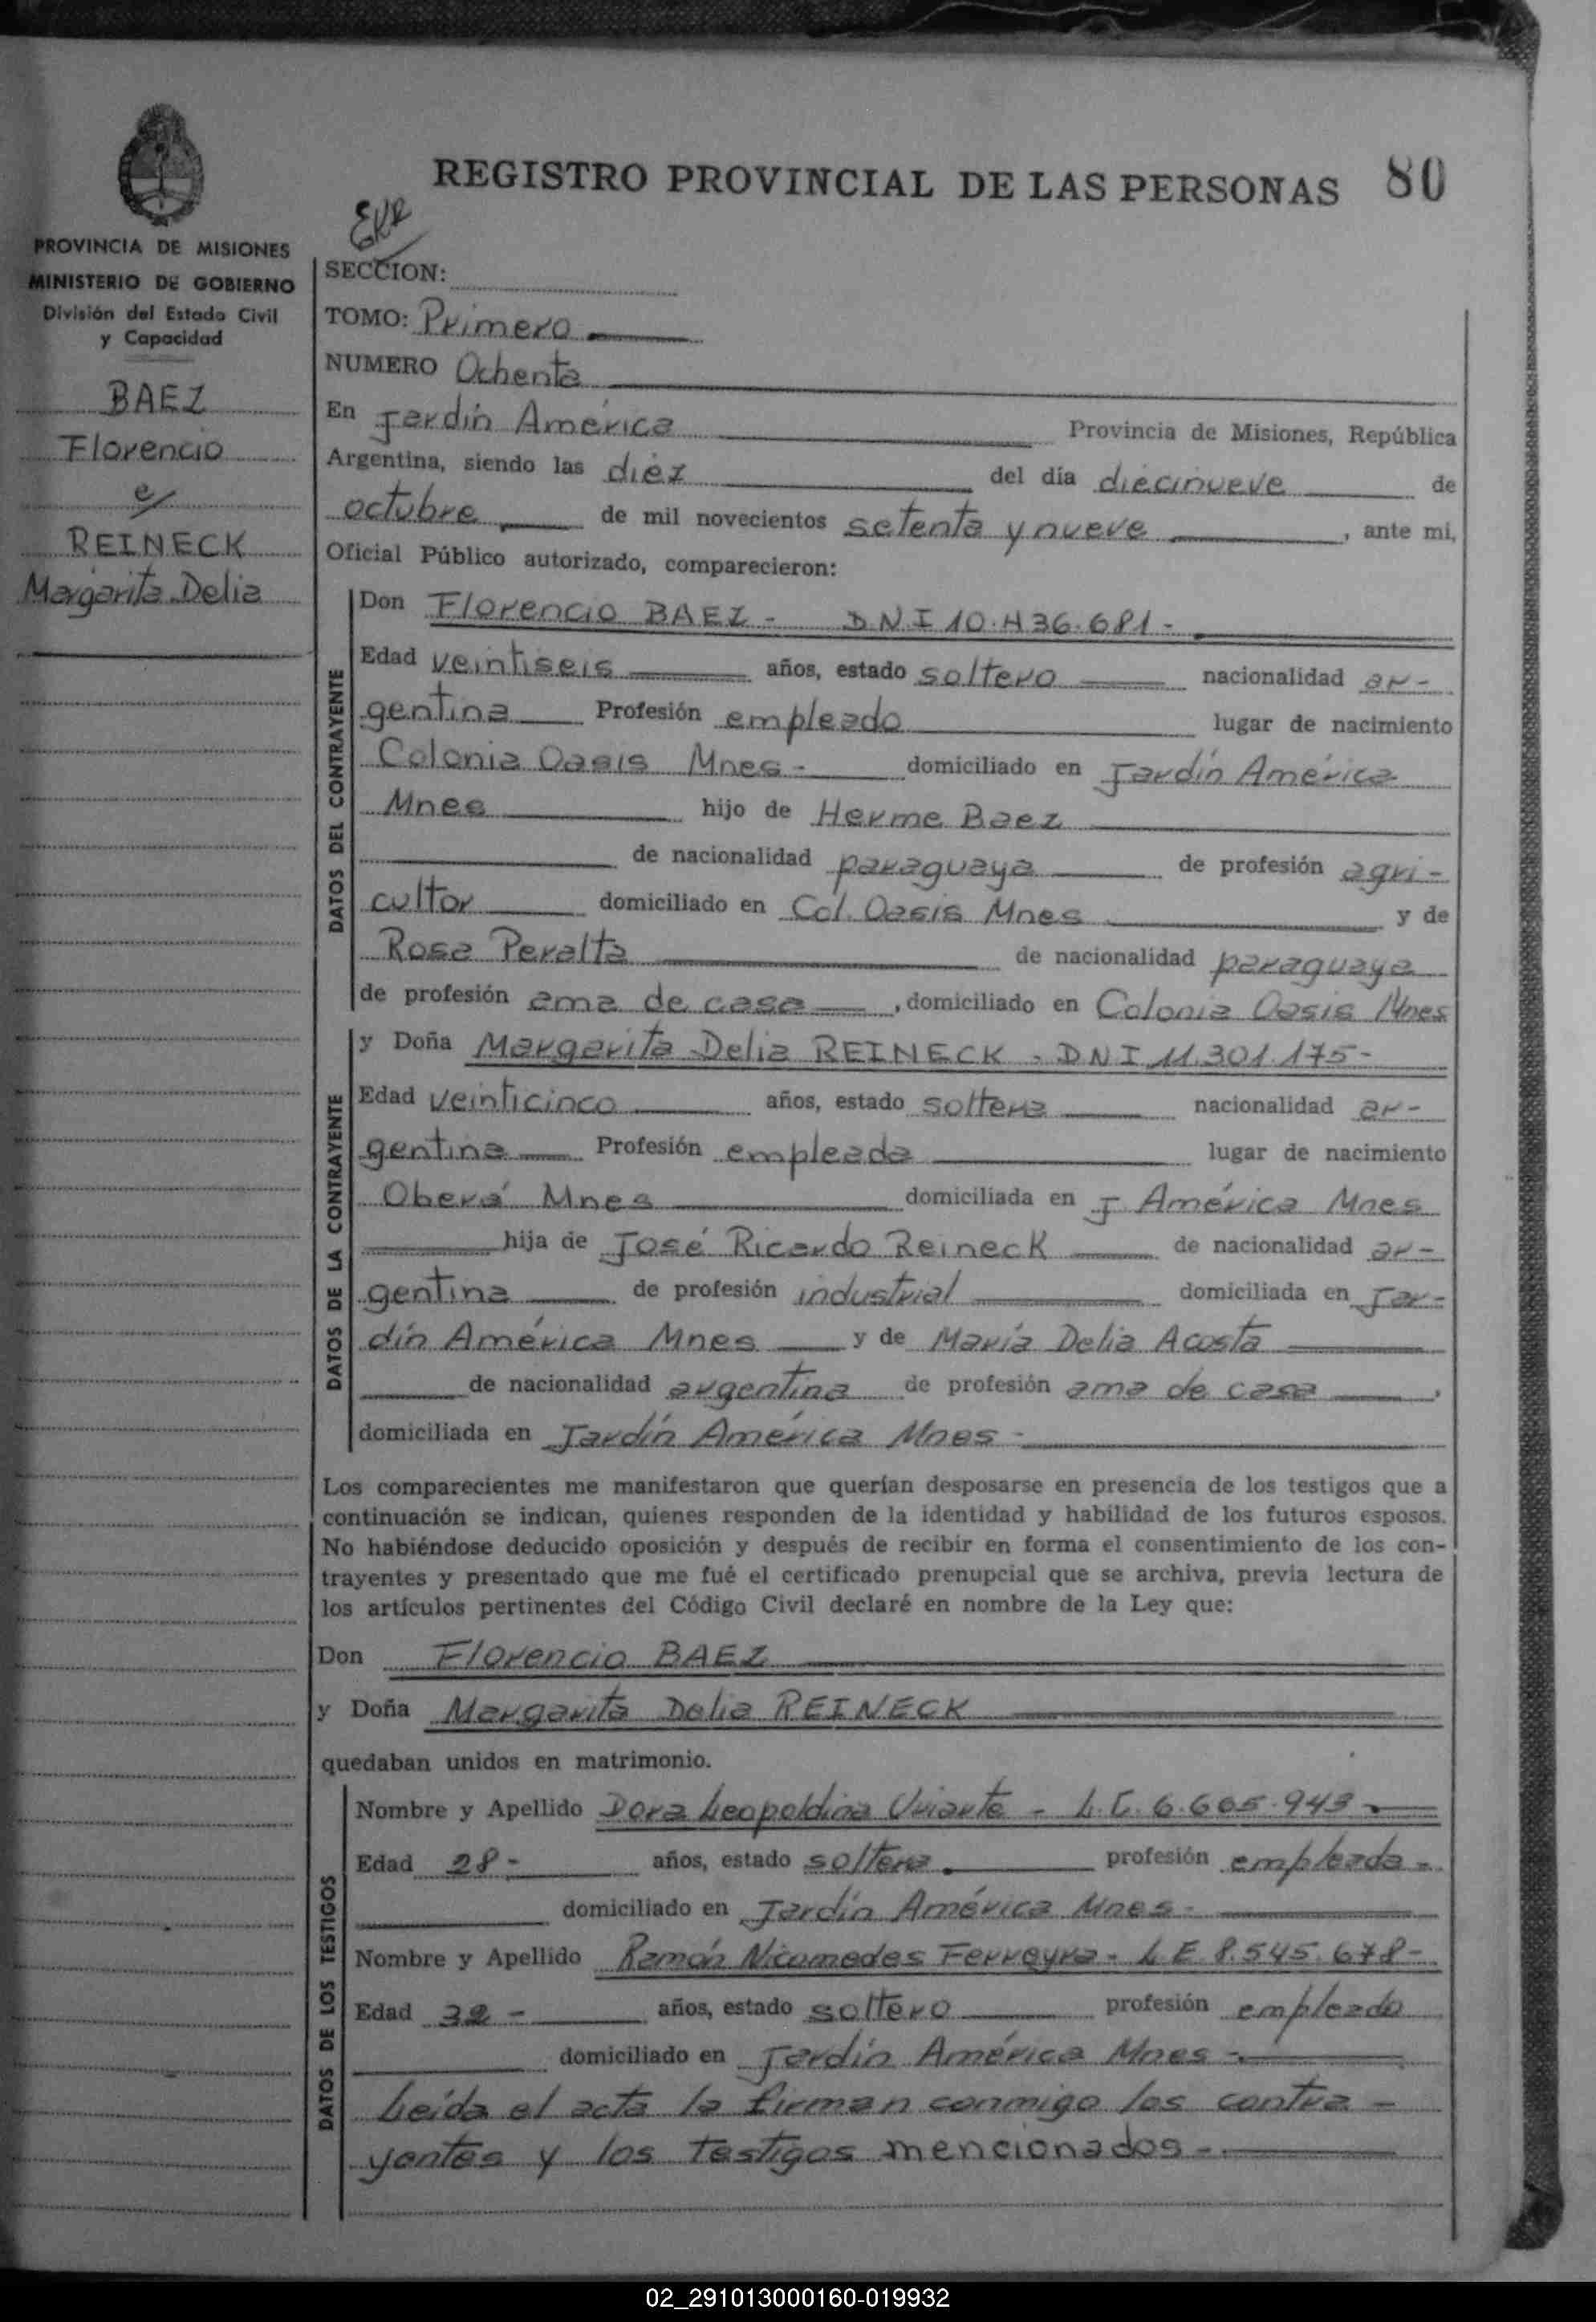 REGISTRO PROVINCIAL DE LAS PERSONAS 80
PROVINCIA DE MISIONES
MINISTERIO DE GOBIERNO
División del Estado Civil
y Capacidad
BAEZ
Florencio
c/
REINECK
Margarita Delia
SECCION:
TOMO: Primero
NUMERO Ochenta
En Jardín América Provincia de Misiones, República
Argentina, siendo las diez del día diecinueve de
octubre de mil novecientos setenta y nueve, ante mi,
Oficial Público autorizado, comparecieron:
DATOS DEL CONTRAYENTE
Don Florencio BAEZ - DNI 10.436.681-
Edad veintiseis años, estado soltero nacionalidad ar-
gentina Profesión empleado lugar de nacimiento
Colonia Oasis Mnes- domiciliado en Jardín América
Mnes hijo de Herme Baez
de nacionalidad paraguaya de profesión agri-
cultor domiciliado en Col. Oasis Mnes y de
Rosa Peralta de nacionalidad paraguaya
de profesión ama de casa, domiciliado en Colonia Oasis Mnes
DATOS DE LA CONTRAYENTE
y Doña Margarita Delia REINECK - DNI 11.301.175-
Edad veinticinco años, estado soltera nacionalidad ar-
gentina Profesión empleada lugar de nacimiento
Oberá Mnes domiciliada en J América Mnes
hija de José Ricardo Reineck de nacionalidad ar-
gentina de profesión industrial domiciliada en Jar-
dín América Mnes y de María Delia Acosta
de nacionalidad argentina de profesión ama de casa,
domiciliada en Jardín América Mnes-
Los comparecientes me manifestaron que querían desposarse en presencia de los testigos que a
continuación se indican, quienes responden de la identidad y habilidad de los futuros esposos.
No habiéndose deducido oposición y después de recibir en forma el consentimiento de los con-
trayentes y presentado que me fué el certificado prenupcial que se archiva, previa lectura de
los artículos pertinentes del Código Civil declaré en nombre de la Ley que:
Don Florencio BAEZ
y Doña Margarita Delia REINECK
quedaban unidos en matrimonio.
DATOS DE LOS TESTIGOS
Nombre y Apellido Dora Leopoldina Uriarte - L.C. 6.605.943-
Edad 28- años, estado soltera profesión empleada-
domiciliado en Jardín América Mnes-
Nombre y Apellido Ramón Nicomedes Ferreyra - L E 8.545.678-
Edad 32- años, estado soltero profesión empleado
domiciliado en Jardín América Mnes-
Leída el acta la firman conmigo los contra-
yentes y los testigos mencionados-
02_291013000160-019932